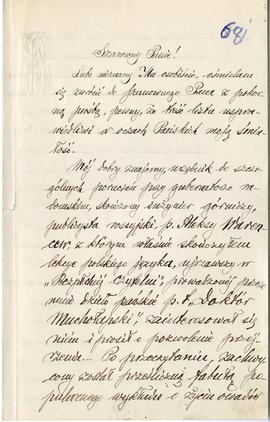 68
Szanowny Panie!
Lubo nieznany Mu osobiście, ośmielam
się zwrócić do Szanownego Pana z pokor-
ną prośbą, pewny, że treść listu uspra-
wiedliwi w oczach Pańskich moją śmia-
łość.
Mój dobry znajomy, urzędnik do szcze-
gólnych poruczeń przy gubernatorze ra-
domskim, skończony inżynier górniczy,
publicysta rosyjski, p. Aleksy
z którym właśnie skończyłem
lekcye polskiego języka, ujrzawszy w
„Bezpłatnej Czytelni", prowadzonej przeze
mnie dzieło pańskie p. t. „Doktór
Muchołapski", zainteresował się
niem i prosił o pozwolenie przej-
rzenia. Po przeczytaniu, zachwy-
cony został prześliczną fabułą po-
pularnego wykładu o życiu owadów